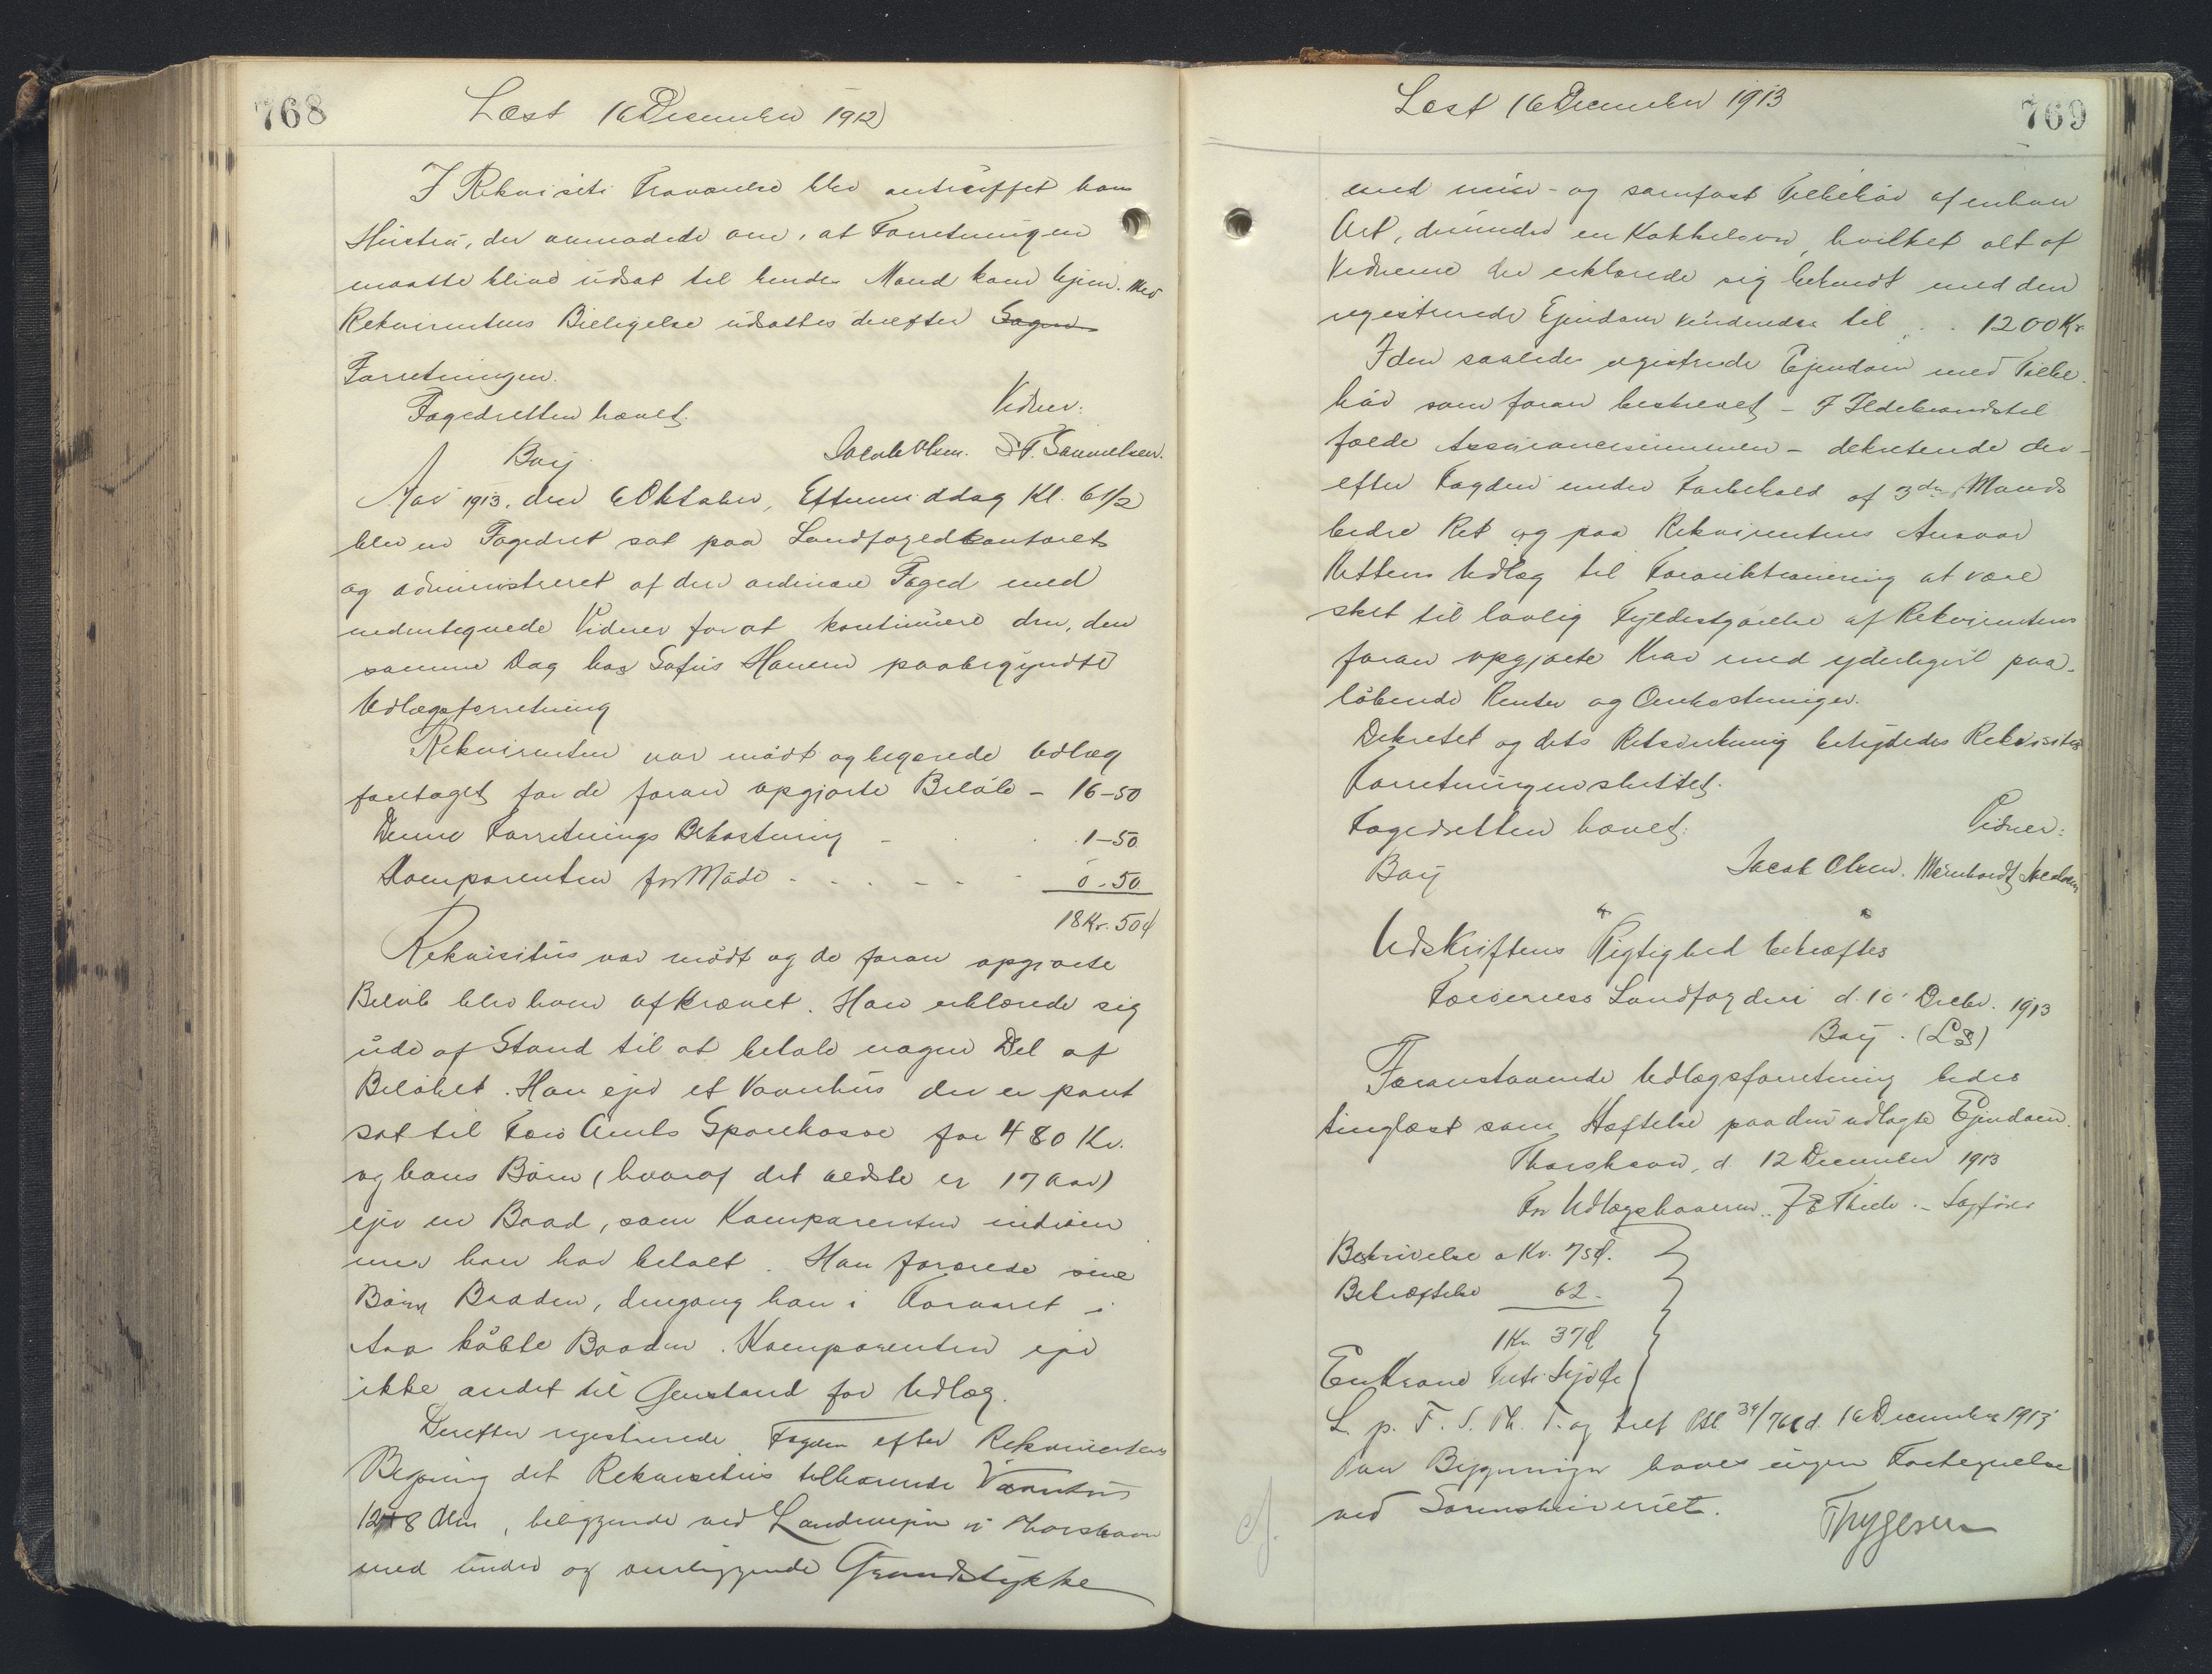 768
Læst 16 December 1912
I Rekvisiti Fraværelse blev antruffet hans
Hustru, der anmodede om, at Forretningen
maatte blive udsat til hendes Mand kom hjem. Med
Rekvirentens Billigelse udsattes derefter Sagen
Forretningen.
Fogedretten hævet.
Vidner:
Bærj
Jacob Olsen. S.P. Samuelsen.
Aar 1913, den 6 Oktober, Eftermiddag Kl. 6 1/2
blev en Fogedret sat paa Landfogedkontoret
og administreret af den ordinære Foged med
undertegnede Vidner for at kontinuere den, den
samme Dag hos Sofus Hansen paabegyndte
Udlægsforretning
Rekvirenten var mødt og begærede Udlæg
foretaget for de foran opgjorte Beløb – 16–50
Denne Forretnings Bekostning – . . 1–50
Komparenten for Møde - . . - - - 0-50
18 Kr. 50 Ø
Rekvisitus var mødt og de foran opgjorte
Beløb blev ham afkrævet. Han erklærede sig
ude af Stand til at betale nogen Del af
Beløbet. Han ejer et Vaanhus der er pant
sat til Færø Amts Sparekasse for 480 Kr.
og hans Børn (hvoraf det ældste er 17 Aar)
ejer en Baad, som Komparenten
mer han har betalt. Han forærede sine
Børn Baaden, dengang han i Foraaret i
Aar købte Baaden. Komparenten ejer
ikke andet til Genstand for Udlæg.
Derefter registrerede Fogden efter Rekvirentens
Begæring det Rekvisitus tilhørende Vaanhus
12 x 8 Alen, beliggende ved Landevejen i Thorshavn
med under og omliggende Grundstykke
Læst 16 December 1913
769
med mur- og sømfast Tilbehør af enhver
Art, derunder en Kakkelovn, hvilket alt af
Vidnerne der erklærede sig bekendt med den
registrerede Ejendom vurderedes til . . 1200 Kr.
I den saaledes registrerede Ejendom med Tilbe
hør som foran beskrevet – I Ildebrandstil
fælde Assurancesummen – dekreterede der-
efter Fogden under Forbehold af 3die Mands
bedre Ret og paa Rekvirentens Ansvar
Rettens Udlæg til Forauktionering at være
sket til lovlig Fyldestgørelse af Rekvirentens
foran opgjorte Krav med yderligere paa-
løbende Renter og Omkostninger.
Dekretet og dets Retsvirkning betydedes Rekvisitus
Forretningen sluttet.
Fogedretten hævet:
Vidner:
Bærj
Jacob Olsen.
Udskriftens Rigtighed bekræftes
Færøernes Landfogderi d. 10 Decbr. 1913
Bærj. (LS)
Foranstaaende Udlægsforretning bedes
tinglæst som Hæftelse paa den udlagte Ejendom.
Thorshavn, d. 12 December 1913
For Udlægshaveren. Sagfører
Beskrivelse o Kr. 75 Ø.
Bekræftelse 62 -
1 Kr. 37 Ø
En Krone
L. p. F. S. Th. T. og d. 16 December 1913
Paa Bygninger haves ingen Fortegnelse
ved Sorenskriveriet.
Thygesen
cf.